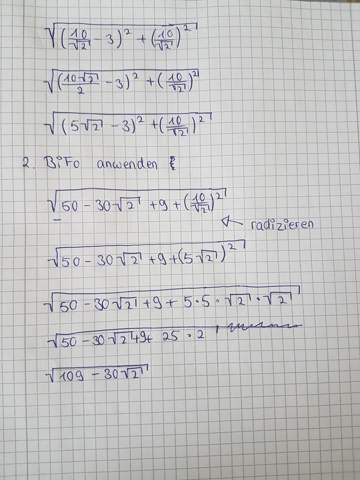 √((10/√2 - 3)² + (10/√2)²)
√((10√2/2 - 3)² + (10/√2)²)
√((5√2 - 3)² + (10/√2)²)
2. BiFo anwenden
√(50 - 30√2 + 9 + (10/√2)²)
radizieren
√(50 - 30√2 + 9 + (5√2)²)
√(50 - 30√2 + 9 + 5·5·√2·√2)
√(50 - 30√2 + 9 + 25·2)
√(109 - 30√2)